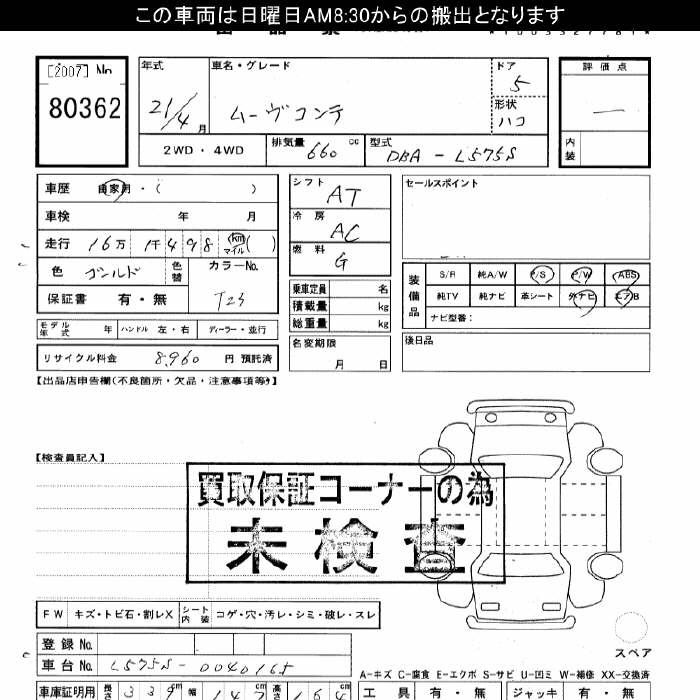 この車両は日曜日AM8:30からの搬出となります
[2007] No
80362
年式
21/4月
車名・グレード
ムーヴコンテ
ドア
5
形状
ハコ
評価点
―
内装
2WD・4WD
排気量 660 cc
型式 DBA-L575S
車歴 自家用・( )
車検 年 月
走行 16万 1千498 km マイル ( )
色 ゴールド
色替
カラーNo.
T23
保証書 有・無
シフト
AT
冷房
AC
燃料
G
セールスポイント
装備品
S/R 純A/W P/S P/W ABS
純TV 純ナビ 革シート 外ナビ エアB
ナビ型番:
乗車定員 名
積載量 kg
総重量 kg
モデル年式 年 ハンドル 左・右 ディーラー・並行
名変期限
月 日
後日品
リサイクル料金 8,960 円 預託済
【出品店申告欄(不良箇所・欠品・注意事項等)】
【検査員記入】
買取保証コーナーの為
未検査
FW キズ・トビ石・割レX シート内装 コゲ・穴・汚レ・シミ・破レ・スレ
スペア
登録No.
車台No. L575S-0040165
A-キズ C-腐食 E-エクボ S-サビ U-凹ミ W-補修 XX-交換済
車庫証明用 長さ 339cm 幅 147 高さ 164
工具 有・無 ジャッキ 有・無